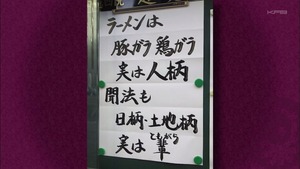 ラーメンは
豚ガラ 鶏ガラ
実は人柄
聞法も
日柄・土地柄
実は輩
ともがら